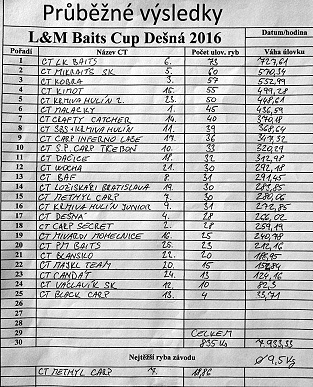 Průběžné výsledky
L&M Baits Cup Dešná 2016 Datum/hodina
Pořadí Název CT Počet ulov. ryb Váha úlovku
1 CT LK BAITS 6. 73 727,61
2 CT MIKBAITS SK 5. 60 570,34
3 CT KOBRA 3. 57 552,99
4 CT KIMOT 15. 55 499,28
5 CT KRMIVA HULÍN 2. 23. 50 408,61
6 CT MALACKY 1. 45 436,59
7 CT CRAFTY CATCHER 14. 40 370,18
8 CT SBS+KRMIVA HULÍN 11. 39 368,64
9 CT CARP INFERNO LAŠE 17. 36 347,32
10 CT S.P. CARP TŘEBOŇ 10. 33 320,29
11 CT DAČICE 18. 32 312,98
12 CT WOCHA 21. 30 292,18
13 CT BAE 8. 31 291,45
14 CT LOŽISKÁŘI BRATISLAVA 19. 30 287,85
15 CT METHYL CARP 7. 30 280,06
16 CT KRMIVA HULÍN JUNIOR 9. 31 272,85
17 CT DESNÁ 4. 28 266,02
18 CT CARP SECRET 2. 28 259,19
19 CT MIVARDI MOHELNICE 16. 25 240,78
20 CT PM BAITS 25. 23 212,16
21 CT BLANSILO 22. 20 188,95
22 CT MAJKL TEAM 20. 15
23 CT CANDÁT 24. 13 124,16
24 CT VÁCLAVÍK SK 12. 10 82,3
25 CT BLACK CARP 13. 4 35,71
26
27
28
29 CELKEM
30 835 Ks 7 933,33
Nejtěžší ryba závodu Ø 9,5 Kg
CT METHYL CARP 7. 18,86